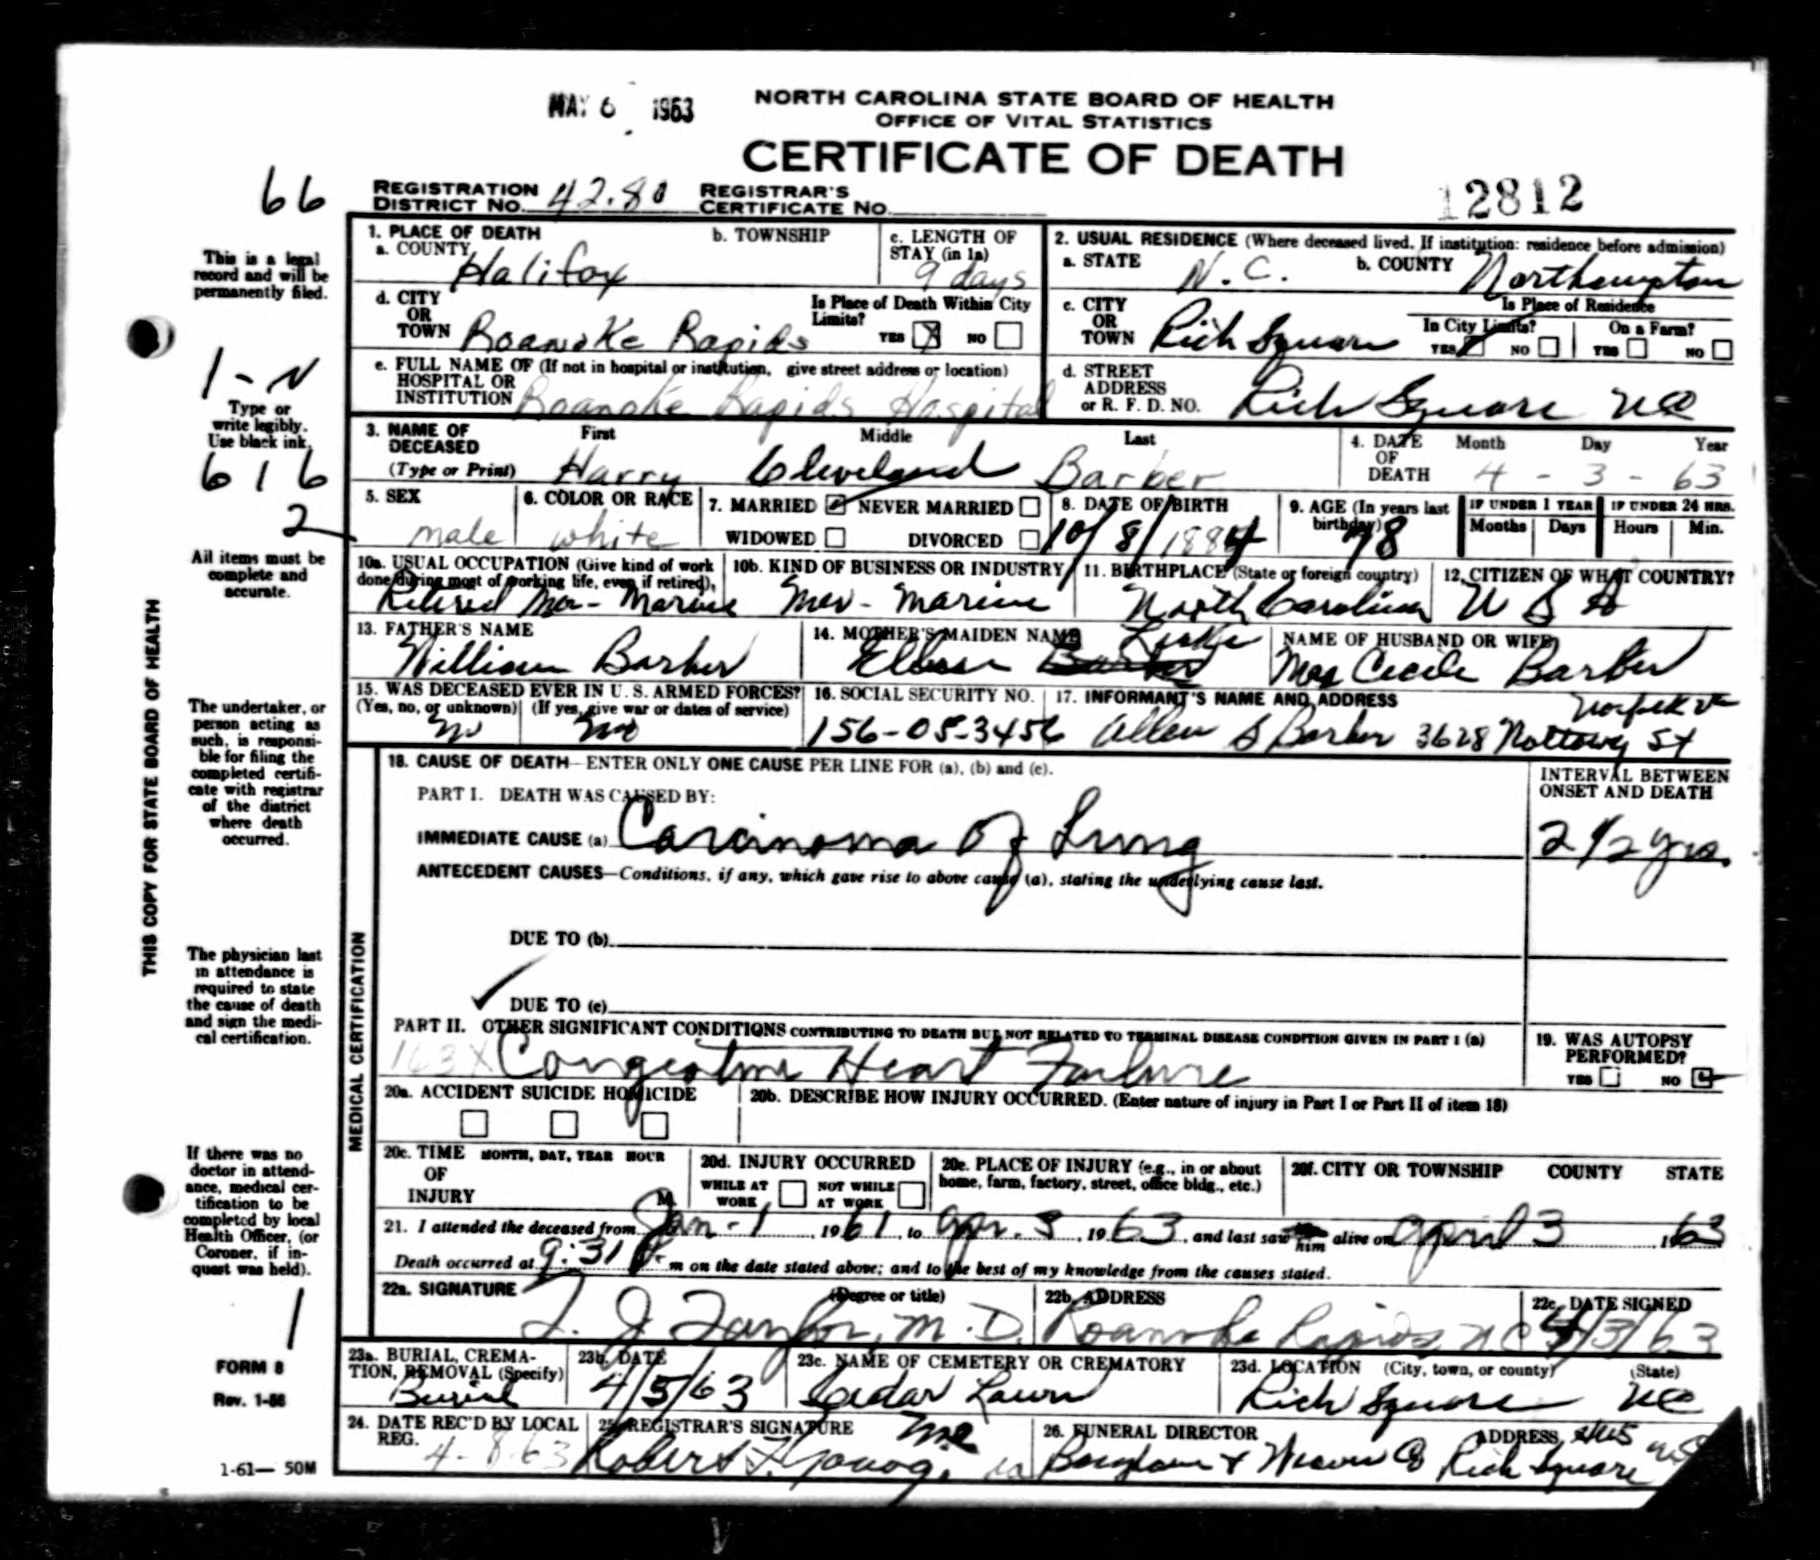 MAY 6 1963
NORTH CAROLINA STATE BOARD OF HEALTH
OFFICE OF VITAL STATISTICS
CERTIFICATE OF DEATH
66
REGISTRATION DISTRICT NO. 42.80 REGISTRAR'S CERTIFICATE NO.
12812
This is a legal record and will be permanently filed.
1. PLACE OF DEATH
a. COUNTY Halifax
b. TOWNSHIP
c. LENGTH OF STAY (in 1a) 9 days
2. USUAL RESIDENCE (Where deceased lived. If institution: residence before admission)
a. STATE N.C. b. COUNTY Northampton
d. CITY OR TOWN Roanoke Rapids
Is Place of Death Within City Limits? YES X NO
c. CITY OR TOWN Rich Square
Is Place of Residence
In City Limits? YES NO On a Farm? YES NO
1-N
e. FULL NAME OF (If not in hospital or institution, give street address or location) HOSPITAL OR INSTITUTION Roanoke Rapids Hospital
d. STREET ADDRESS or R. F. D. NO. Rich Square NC
Type or write legibly. Use black ink.
3. NAME OF DECEASED (Type or Print) First Harry Middle Cleveland Last Barber
4. DATE OF DEATH Month Day Year 4 - 3 - 63
616
2
5. SEX male
6. COLOR OR RACE white
7. MARRIED NEVER MARRIED
WIDOWED DIVORCED
8. DATE OF BIRTH 10/8/1884
9. AGE (In years last birthday) 78
IF UNDER 1 YEAR Months Days
IF UNDER 24 HRS. Hours Min.
All items must be complete and accurate.
10a. USUAL OCCUPATION (Give kind of work done during most of working life, even if retired) Retired Mer- Marine
10b. KIND OF BUSINESS OR INDUSTRY Mer- Marine
11. BIRTHPLACE (State or foreign country) North Carolina
12. CITIZEN OF WHAT COUNTRY? USA
13. FATHER'S NAME William Barber
14. MOTHER'S MAIDEN NAME
NAME OF HUSBAND OR WIFE Mrs Cecile Barber
15. WAS DECEASED EVER IN U. S. ARMED FORCES?
(Yes, no, or unknown) No (If yes, give war or dates of service) no
16. SOCIAL SECURITY NO. 156-05-3456
17. INFORMANT'S NAME AND ADDRESS Allen S Barber 3628 Nottoway St Norfolk Va
THIS COPY FOR STATE BOARD OF HEALTH
The undertaker, or person acting as such, is responsible for filing the completed certificate with registrar of the district where death occurred.
MEDICAL CERTIFICATION
18. CAUSE OF DEATH—ENTER ONLY ONE CAUSE PER LINE FOR (a), (b) and (c).
INTERVAL BETWEEN ONSET AND DEATH
PART I. DEATH WAS CAUSED BY:
IMMEDIATE CAUSE (a) Carcinoma of Lung 2 1/2 yrs.
ANTECEDENT CAUSES—Conditions, if any, which gave rise to above cause (a), stating the underlying cause last.
DUE TO (b)
DUE TO (c)
The physician last in attendance is required to state the cause of death and sign the medical certification.
PART II. OTHER SIGNIFICANT CONDITIONS CONTRIBUTING TO DEATH BUT NOT RELATED TO TERMINAL DISEASE CONDITION GIVEN IN PART I (a)
163X Congestive Heart Failure
19. WAS AUTOPSY PERFORMED? YES NO
20a. ACCIDENT SUICIDE HOMICIDE
20b. DESCRIBE HOW INJURY OCCURRED. (Enter nature of injury in Part I or Part II of item 18)
20c. TIME OF INJURY MONTH, DAY, YEAR HOUR M.
20d. INJURY OCCURRED WHILE AT WORK NOT WHILE AT WORK
20e. PLACE OF INJURY (e.g., in or about home, farm, factory, street, office bldg., etc.)
20f. CITY OR TOWNSHIP COUNTY STATE
If there was no doctor in attendance, medical certification to be completed by local Health Officer, (or Coroner, if inquest was held).
21. I attended the deceased from Jan - 1 1961 to Apr. 3 1963, and last saw him alive on April 3 1963
Death occurred at 9:31 P. m on the date stated above; and to the best of my knowledge from the causes stated.
22a. SIGNATURE (Degree or title) T. J. Taylor, M.D.
22b. ADDRESS Roanoke Rapids NC
22c. DATE SIGNED 4/3/63
1
23a. BURIAL, CREMATION, REMOVAL (Specify) Burial
23b. DATE 4/5/63
23c. NAME OF CEMETERY OR CREMATORY Cedar Lawn
23d. LOCATION (City, town, or county) (State) Rich Square NC
FORM 8
Rev. 1-56
1-61— 50M
24. DATE REC'D BY LOCAL REG. 4-8-63
25. REGISTRAR'S SIGNATURE Robert F. Young
26. FUNERAL DIRECTOR ADDRESS & Weaver Co Rich Square NC